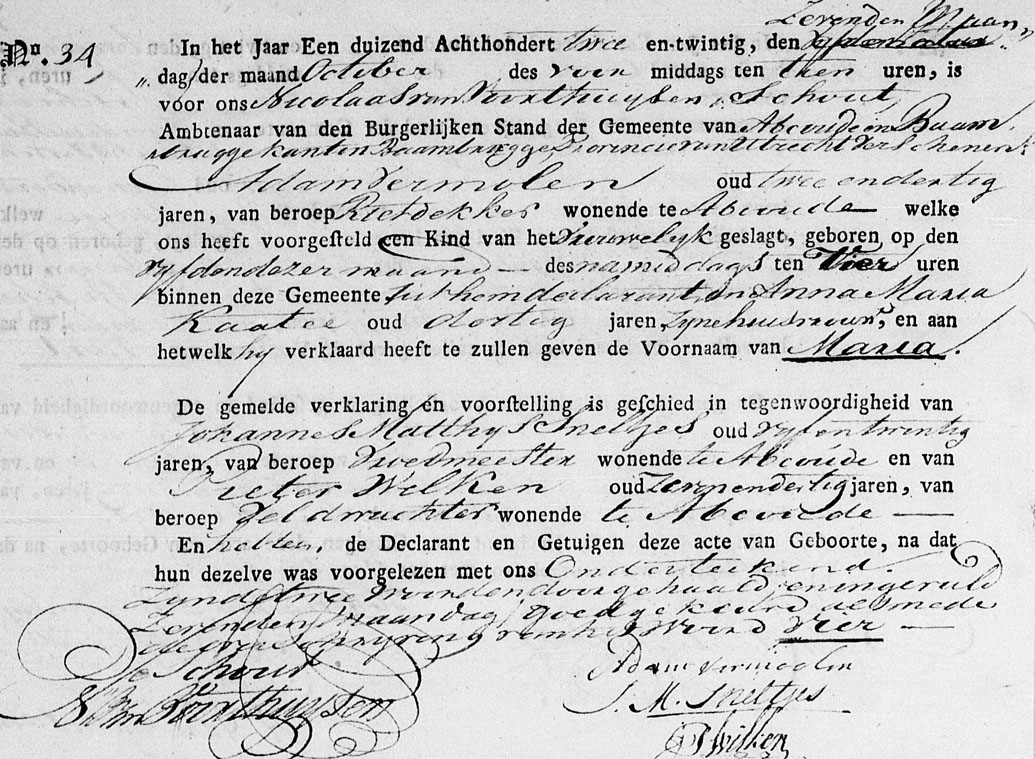 Zevenden Maan
No. 34 In het Jaar Een duizend Achthondert twee en-twintig, den
„ dag der maand October des voor middags ten tien uren, is
voor ons Nicolaas van Voorthuijsen, Schout,
Ambtenaar van den Burgerlijken Stand der Gemeente van Abcoude en Baam
brugge kanton Baambrugge Provincie van Utrecht verschenen:
Adam Vermolen oud twee endertig
jaren, van beroep Rietdekker wonende te Abcoude welke
ons heeft voorgesteld een Kind van het Vrouwelyk geslagt, geboren op den
vyfden dezer maand des namiddags ten Vier uren
binnen deze Gemeente uit hem declarant, en Anna Maria
Kaatee oud dertig jaren, zyne huisvrouw, en aan
hetwelk hy verklaard heeft te zullen geven de Voornaam van Maria.
De gemelde verklaring en voorstelling is geschied in tegenwoordigheid van
Johannes Matthys Sneltjes oud vyf en twintig
jaren, van beroep Vroedmeester wonende te Abcoude en van
Pieter Wilken oud zeven endertig jaren, van
beroep Veldwachter wonende te Abcoude
En hebben, de Declarant en Getuigen deze acte van Geboorte, na dat
hun dezelve was voorgelezen met ons Onderteekend.
Zynde twee woorden doorgehaald en ingevuld
Zevenden Maandag, goedgekeurd alsmede
de overschryving van het woord Vier
de Schout
N van Voorthuijsen
Adam Vermoolen
J. M. Sneltjes
P Wilken